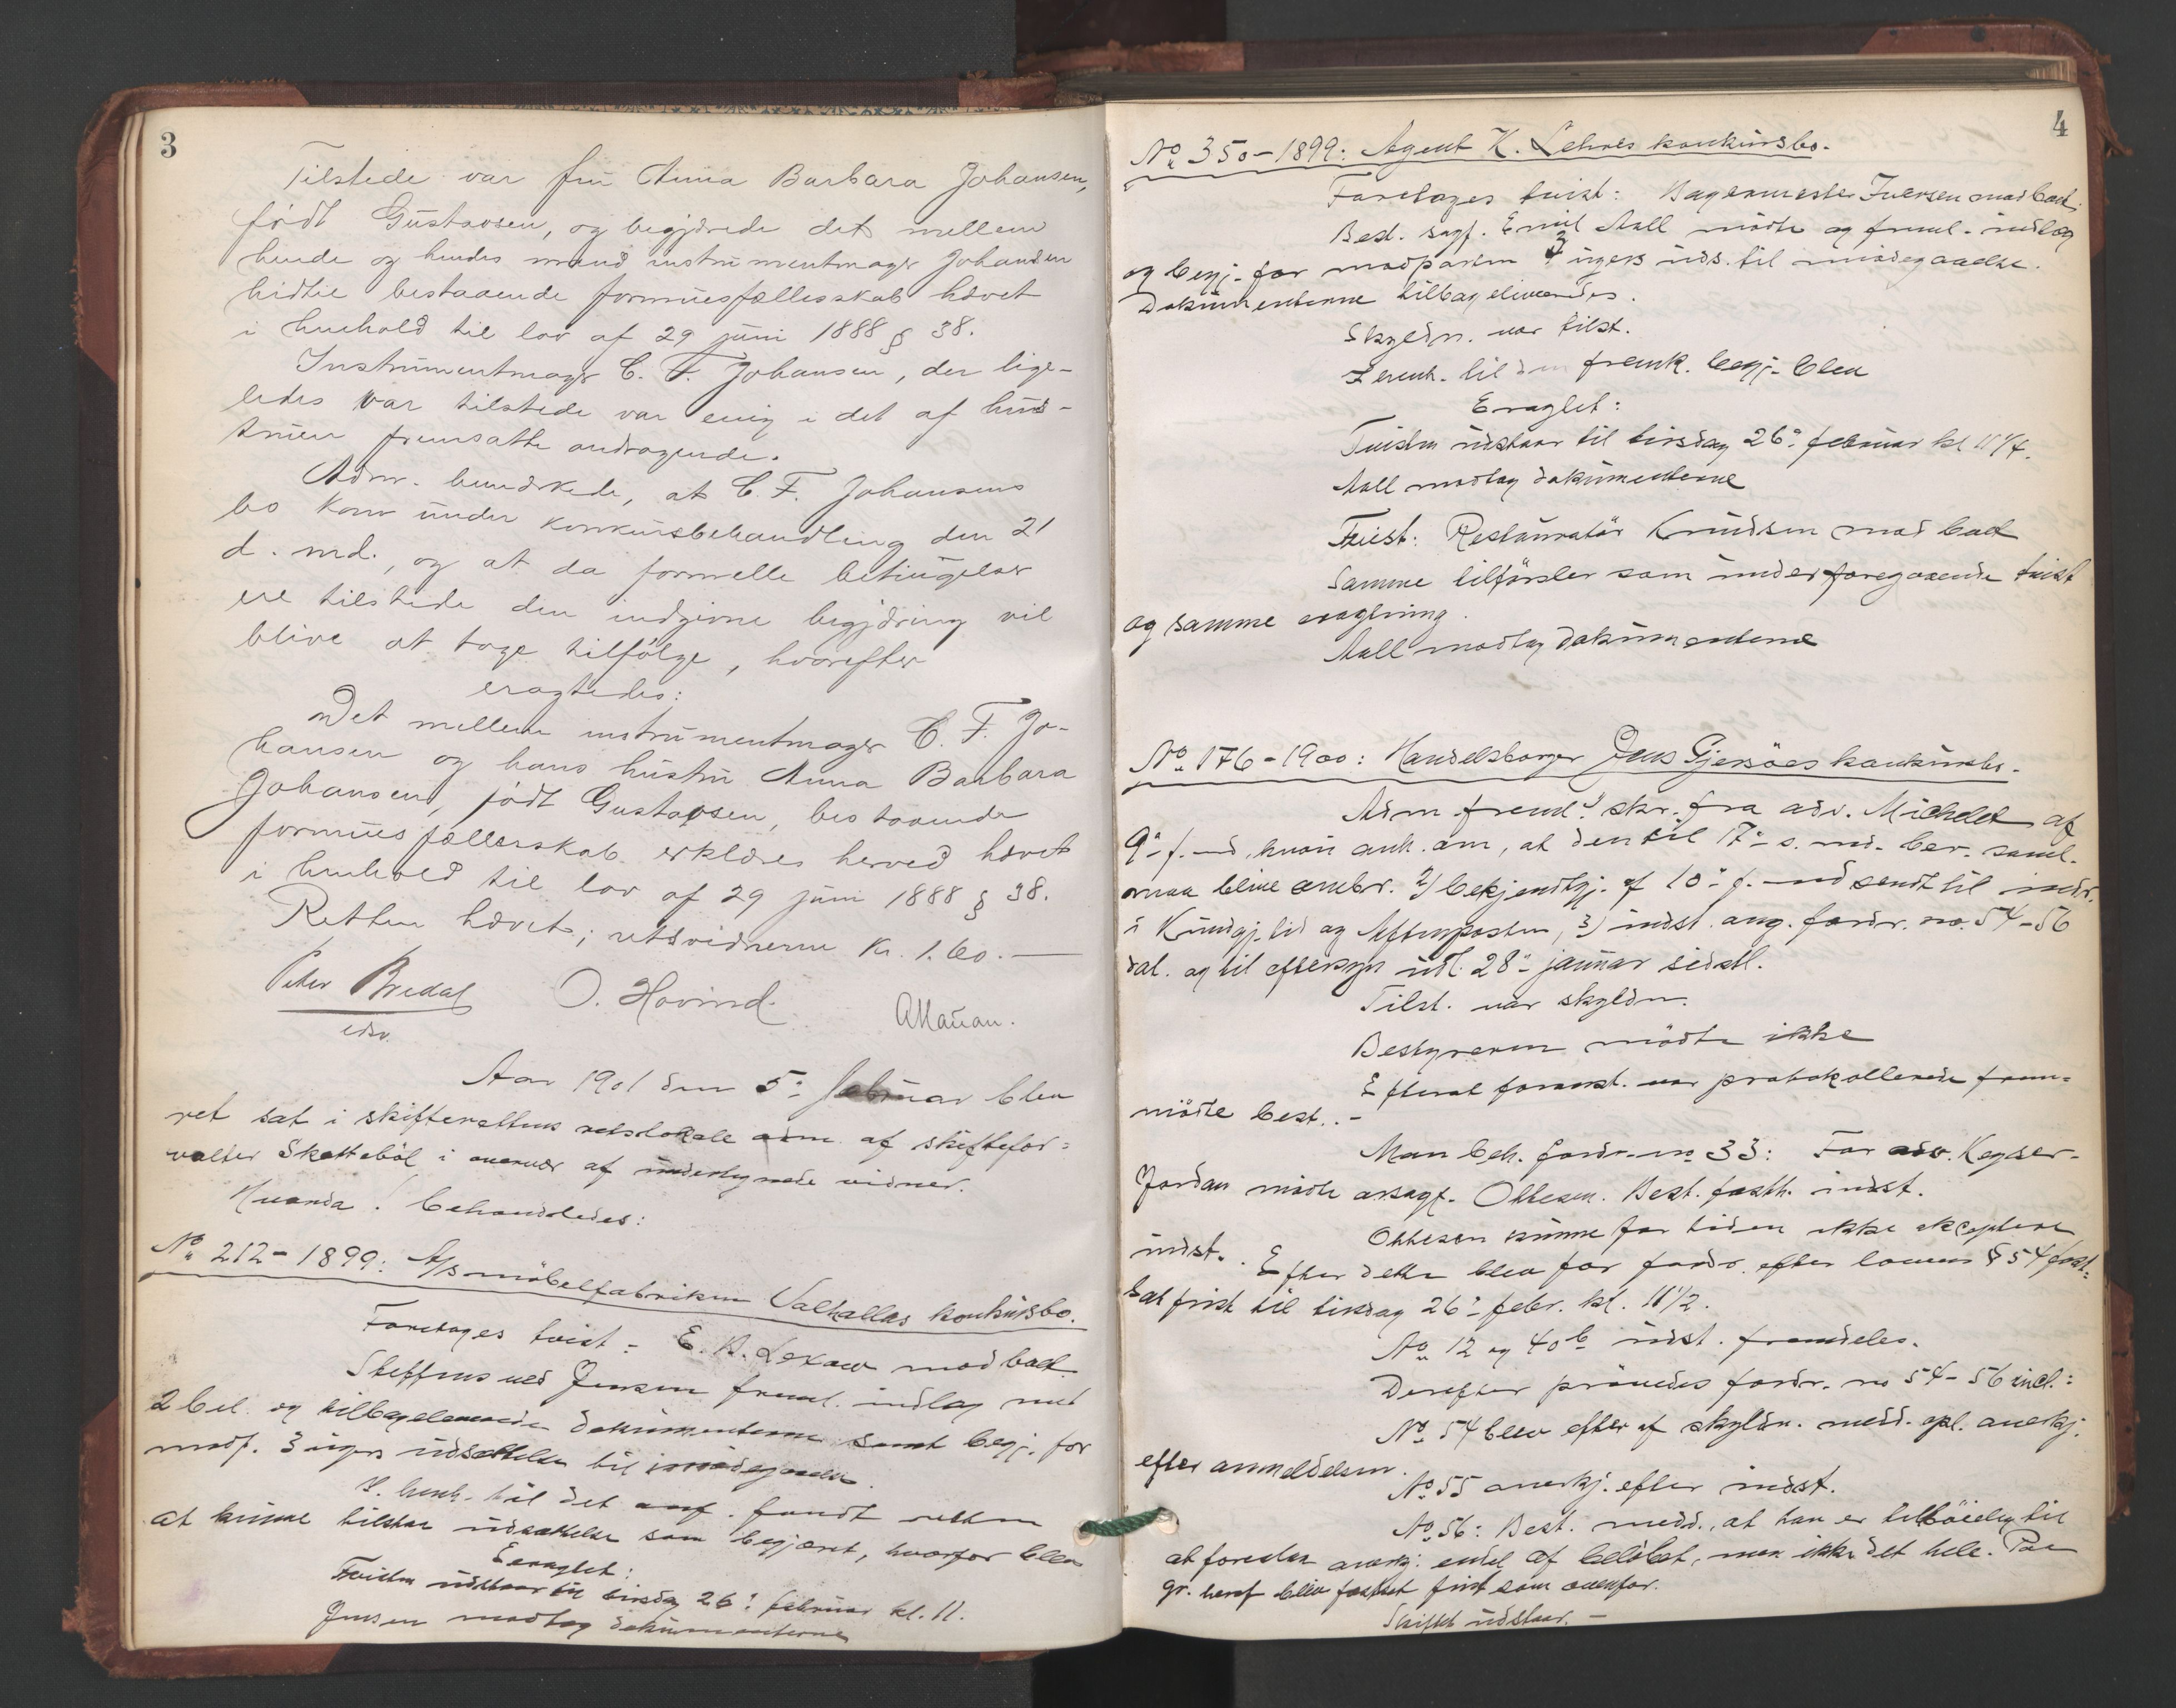 3
Tilstede var fru Anna Barbara Johansen,
födt Gustavsen, og begjærede det mellem
hende og hendes mand instrumentmager Johansen
hidtil bestaaende formuesfællesskab hævet
i henhold til lov af 29 juni 1888 § 38.
Instrumentmager C. F. Johansen, der lige-
ledes var tilstede var enig i det af hus-
truen fremsatte andragende.
Adm. bemærkede, at C. F. Johansens
bo kom under konkursbehandling den 21
d. md., og at da formelle betingelser
ere tilstede den indgivne begjæring vil
blive at tage tilfölge, hvorefter
eragtedes:
Det mellem instrumentmager C. F. Jo-
hansen og hans hustru Anna Barbara
Johansen, födt Gustavsen, bestaaende
formuesfællesskab erklæres herved hævet
i henhold til lov af 29 juni 1888 § 38.
Retten hævet; retsvidnerne kr. 1.60. —
Peter Bredal O. Hovind.
edsv.
Aar 1901 den 5. februar blev
ret sat i skifterettens retslokale adm. af skiftefor=
valter Skatteböl i overvær af undertegnede vidner.
Hvorda! behandledes:
No. 212 - 1899: A/s möbelfabriken Valhallas konkursbo.
Foretages tvist: E. A. Lexow mod boet.
Steffens ved Jensen freml. indlæg med
2 bil. og tilbageleverede dokumenterne samt begj. for
modp. 3 ugers udsættelse til imødegaaelse.
I henh. til det anf. fandt retten
at kunne tilstaa udsættelse som begjæret, hvorfor blev
Eragtet:
Tvisten udstaar til tirsdag 26. februar kl. 11.
Jensen modtog dokumenterne
4
No. 350 - 1899: Agent K. Lehnes konkursbo.
Foretages tvist: Bagermester Iversen mod boet.
Best. sagf. Emil Aall mödte og freml. indlæg
og begj. for modparten 3 ugers uds. til imødegaaelse.
Dokumenterne tilbageleveredes.
Skyldn. var tilst.
I henh. til den fremk. begj. blev
Eragtet:
Tvisten udstaar til tirsdag 26. februar kl 11 1/4.
Aall modtog dokumenterne
Tvist: Restauratör Knudsen mod boet
Samme tilförsler som under foregaaende tvist
og samme eragtning.
Aall modtog dokumenterne
No. 176 - 1900: Handelsborger Jens Gjersöes konkursbo.
Adm. freml. 1) skr. fra adv. Michelet af
9. f. md, hvori anh. om, at den til 17. s. md. ber. saml.
maa blive ombr. 2) bekjendtgj. af 10. f. md sendt til indr.
i Kundgj. tid og Aftenposten, 3) indst. ang. fordr. no. 54-56
dat. og til eftersyn udl. 28. januar sidstl.
Tilst. var skyldn.
Bestyreren mödte ikke
Efterat foranst. var protokolleret frem=
mödte best. -
Man beh. fordr. no 33: For adv. Keyser-
Jordan mödte orsagf. Ottesen. Best. fasth. indst.
Ottesen kunne for tiden ikke akceptere
indst. Efter dette blev for fordr. efter lovens § 54 fast=
sat frist til tirsdag 26. febr. kl. 11 1/2.
No. 12 og 40b udst. fremdeles.
Derefter prövedes fordr. no 54-56 incl.:
No. 54 blev efter af skyldn. medd. opl. anerkj.
efter anmeldelsen.
No. 55 anerkj. efter indst.
No. 56: Best. medd., at han er tilböielig til
at foreslaa anerkj. endel af belöbet, men ikke det hele. Paa
gr. heraf blev fastsat frist som ovenfor.
Skiftet udstaar. -